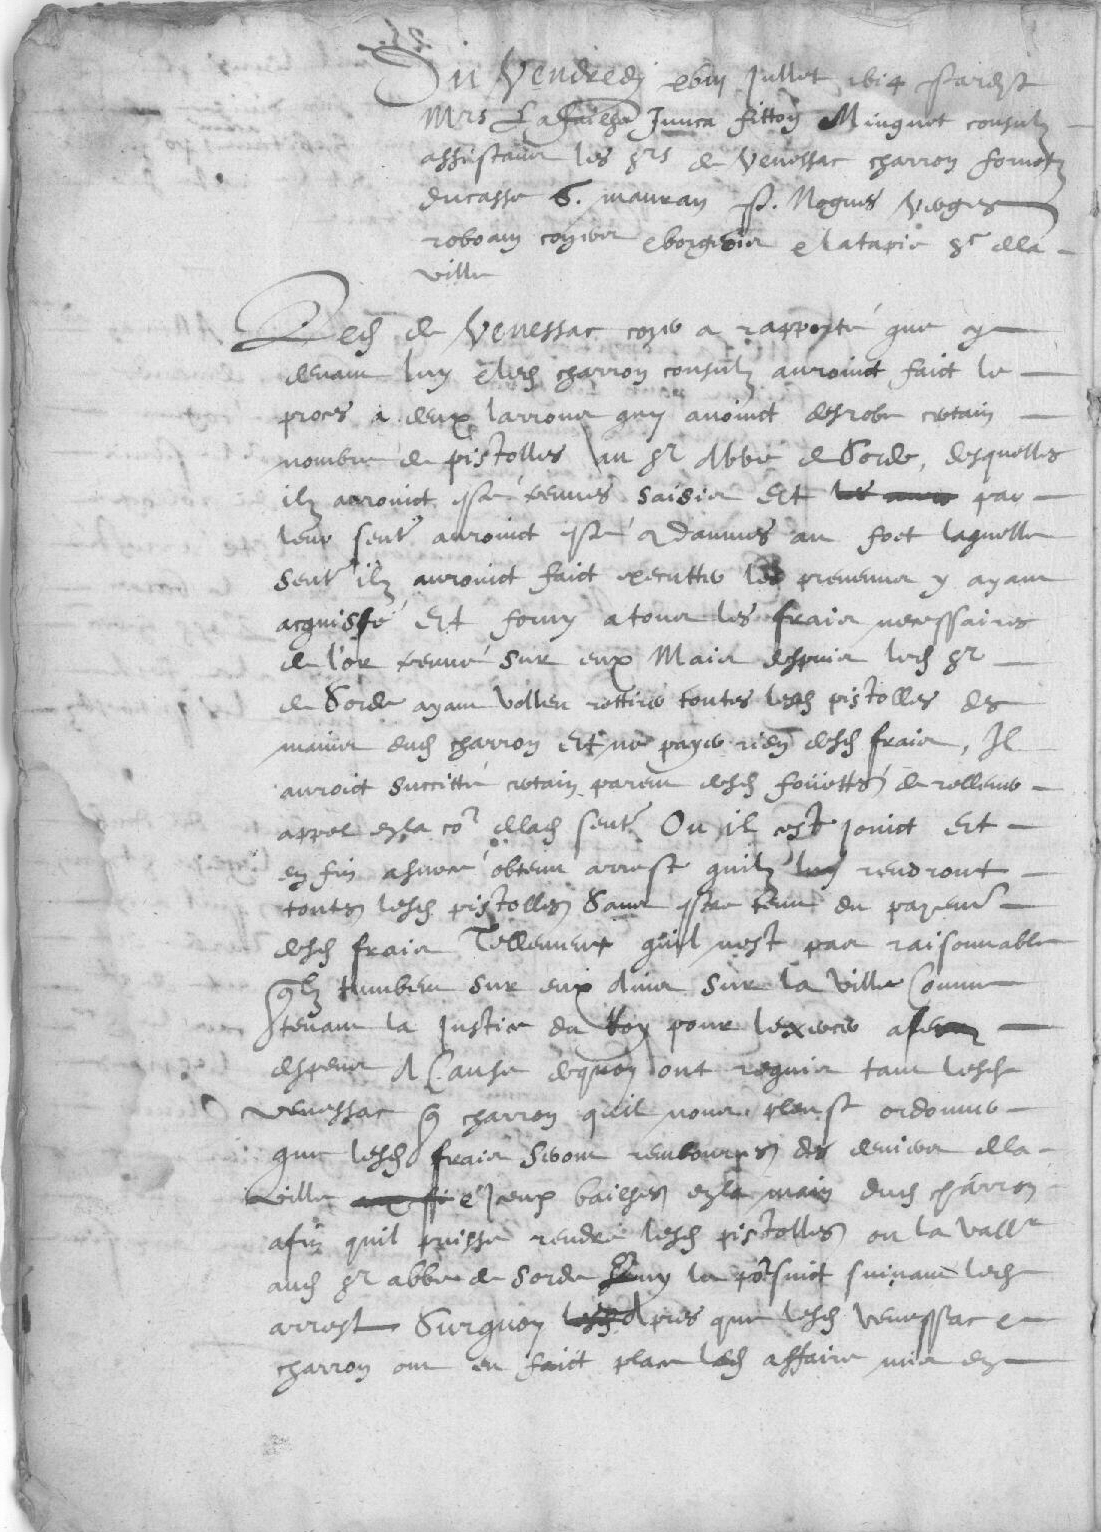 Du Vendredy xviii Jullet 1614 pardt
Mrs Lafargue Junca fitton Minguet consulz
assistans les srs de Venessac charron fornetz
ducasse G. mauran P. Nogues Verges
roboam conser e borgerie e latapie sr della
ville
Led de Venessac conser a rapporté que cy
devant luy e led charron consulz auroinct faict le
proces a deux larrons quy avoinct desrobe certain
nombre de pistolles au sr Abbé de Sorde, desquelles
ilz auroinct esté trouvés saisis Et par
leur sent auroinct esté condamnés au foet laquelle
sent ilz auroinct faict executter les prevenus y ayant
acquissé Et forny a tous les frais necessaires
de l'or trouvé sur eux Mais despuis led sr
de Sorde ayant vollu rettirer toutes lesd pistolles des
mains dud charron Et ne payer rien desd frais, Il
auroict succitté certain parent desd fouettés de rellever
appel en la co dellad sent Ou il est joinct Et
en fin a sur ce obtenu arrest quilz luy rendront
toutes lesd pistolles sans estre tenu du payemt
desd frais Tellement quil nest pas raisonnable
quilz tumbent sur eux Ains sur la ville Comme
tenant la Justice du Roy pour lexercer a ses
despens A Cause dequoy ont requis tant lesd
venessac que charron quil nous pleust ordonner
que lesd frais seront remboursés des deniers della
ville e Iceux bailhés en la main dud charron
afin quil puisse rendre lesd pistolles ou la vallr
aud sr abbé de Sorde quy le porsuict suivant led
arrest Surquoy Apres que lesd Venessac e
charron ont eu faict place led affaire mis en